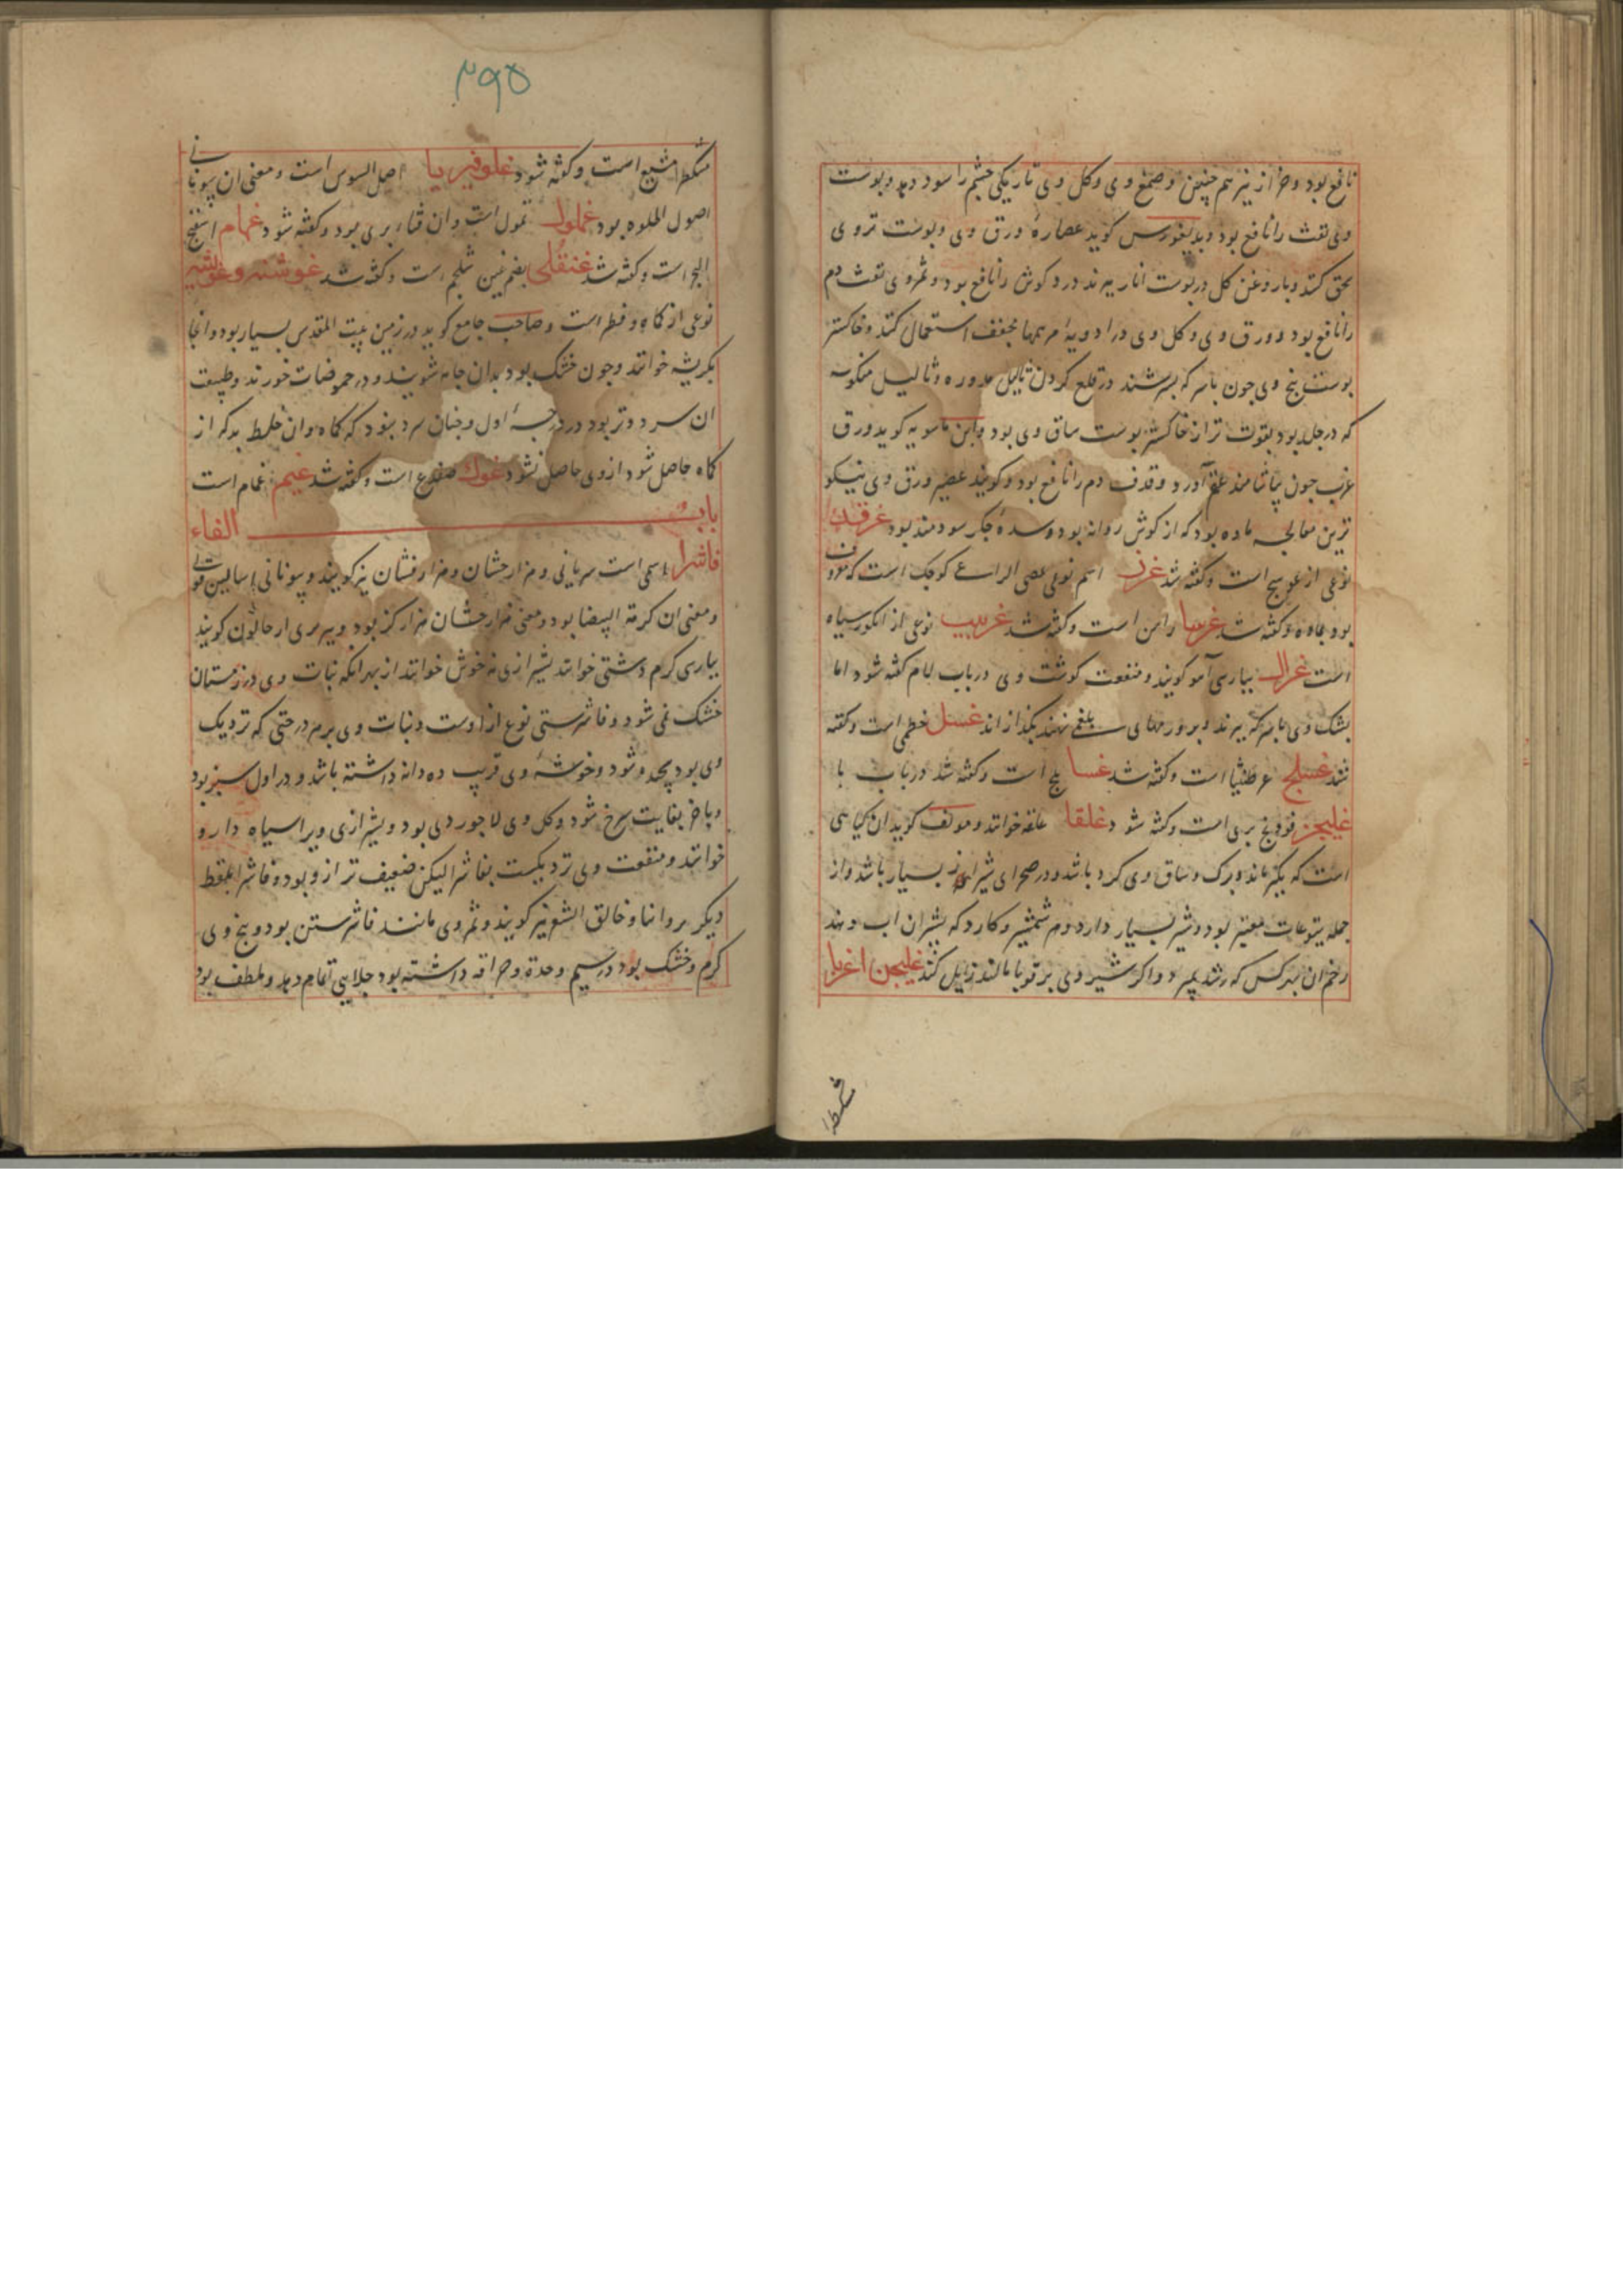 نافع بود وجزاز نیز هم چنین وصمغ وی وکل وی تاریکی چشم را سود دهد وپوست
وی نفث را نافع بود ودیسقوریدس کوید عصارهٔ ورق وی وپوست تر وی
سحق کنند وبا روغن کل در پوست انار بپزند درد کوش را نافع بود وثمر وی نفث دم
را نافع بود وورق وی وکل وی در ادویهٔ مرهمها مجفف استعمال کنند وخاکستر
پوست بیخ وی چون با سرکه بسرشند در قلع کردن ثالیل مدوره وثالیل منکوسه
که در جلد بود بقوت تر از خاکستر پوست ساق وی بود وابن ماسویه کوید ورق
غرب چون بیاشامند آورد وقذف دم را نافع بود وکویند عصیر ورق وی نیکو
ترین معالجه ماده بود که از کوش روانه بود وسدهٔ جکر سودمند بود غرقد
نوعی از عوسج است وکفته شد غرز اسم نوعی عصی الراعی کوچک است که معروف
بود وکفته شد غرسا راسن است وکفته شد غربیب نوعی از انکور سیاه
است غزال بپارسی آهو کویند ومنفعت کوشت وی در باب لام کفته شود اما
بشک وی با سرکه بپزند وبر ورمهای بلغمی نهند بکدازاند غسل خطمی است وکفته
شد غسلج عرطنیثا است وکفته شد غسا بلح است وکفته شد در باب با
غلیجن فودنج بری است وکفته شود غلقا علقه خوانند ومولف کوید ان کیاهی
است که بکبر ماند وبرک وساق وی کرد باشد ودر صحرای شیراز بسیار باشد واز
جمله یتوعات معتبر بود وشیر بسیار دارد وهم شمشیر وکارد که بشیر ان اب دهند
زخم ان بهرکس که رسد بمیرد واکر شیر وی بر قوبا مالند زایل کند غلیجن اغریا
مشکطرا
۲۹۵
مشکطرامشیع است وکفته شود غلوفیریا اصل السوس است ومعنی ان بیونانی
اصول الحلوه بود غملول تملول است وان قثاء بری بود وکفته شود غمام اسفنج
البحر است وکفته شد غنقلی بضم غین شلجم است وکفته شد غوشنه وغوشه
نوعی از کماه وفطر است وصاحب جامع کوید در زمین بیت المقدس بسیار بود وانجا
بکریشه خوانند وچون خشک بود بدان جامه شویند ودر حموضات خورند وطبیعت
ان سرد وتر بود در درجهٔ اول وچنان سرد نبود که کماه وان خلط بد که از
کماه حاصل شود از وی حاصل نشود غوک ضفدع است وکفته شد غیم غمام است
باب الفاء
فاشرا اسمی است سریانی وهزارجشان وهزار فشان نیز کویند وبیونانی
ومعنی ان کرمة البیضا بود ومعنی هزارجشان هزار کز بود وببربری ارحالون کویند
بپارسی کرم دشتی خوانند بشیرازی نه خوش خوانند از بهر انکه نبات وی در زمستان
خشک نمی شود وفاشرستی نوع از اوست ونبات وی بر هر درختی که نزدیک
وی بود بپیچد وشود وخوشهٔ وی قریب ده دانه داشته باشد ودر اول سبز بود
وباخر بغایت سرخ شود وکل وی لاجوردی بود وبشیرازی ویرا سیاه دارو
خوانند ومنفعت وی نزدیکست بفاشرا لیکن ضعیف تر از و بود وفاشرا بلفظ
دیکر بروانیا وخالق الشعر نیز کویند وثمر وی مانند فاشرستن بود وبیخ وی
کرم وخشک بود در سیم وحدة وحراقه داشته بود جلایی تمام دهد وملطف بود